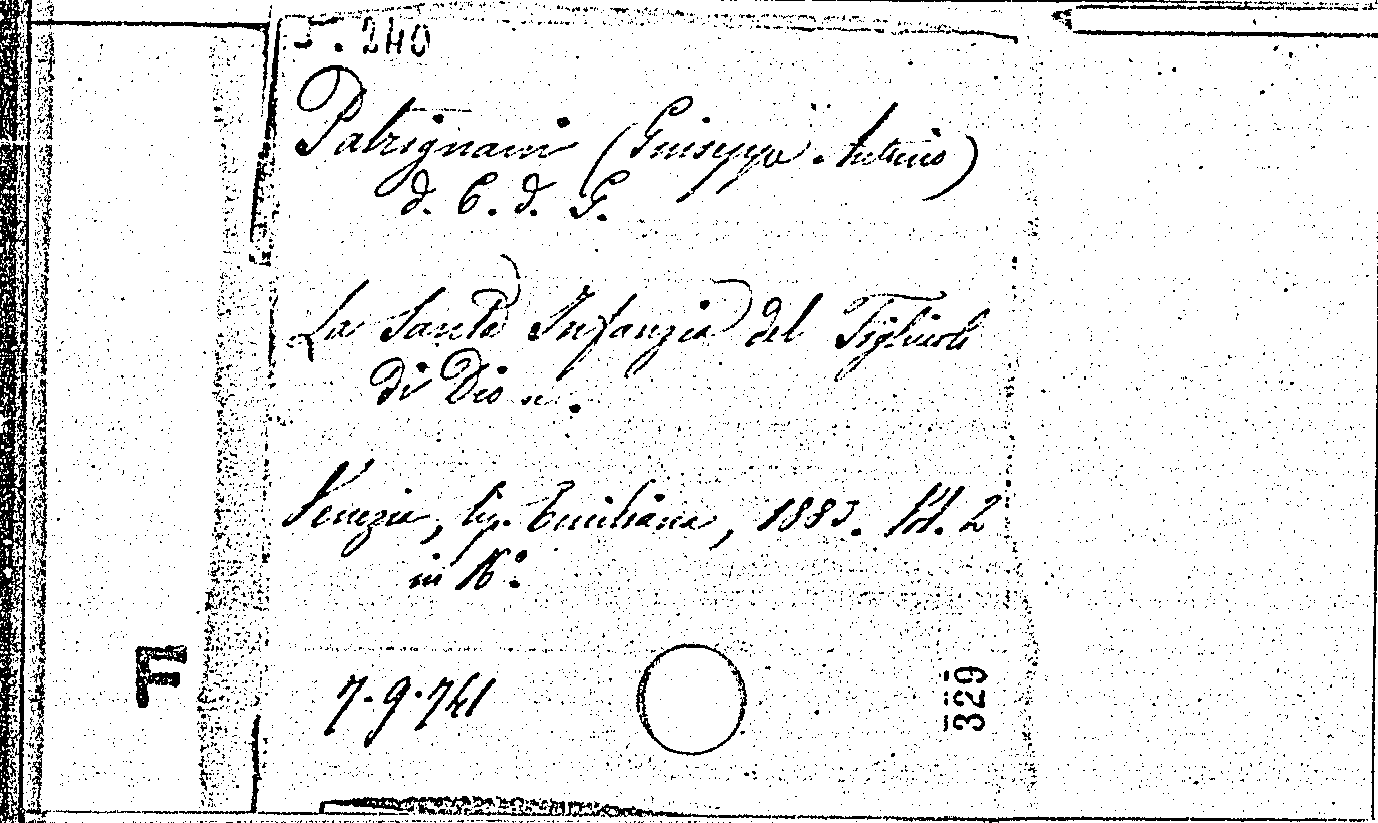 5. 240
Patrignani (Giuseppe Antonio)
d. C. d. G.
La Santa Infanzia del Figliuolo
di Dio ...
Venezia, tip. Emiliana, 1883. Vol. 2
in 16°.
7-9-741
329